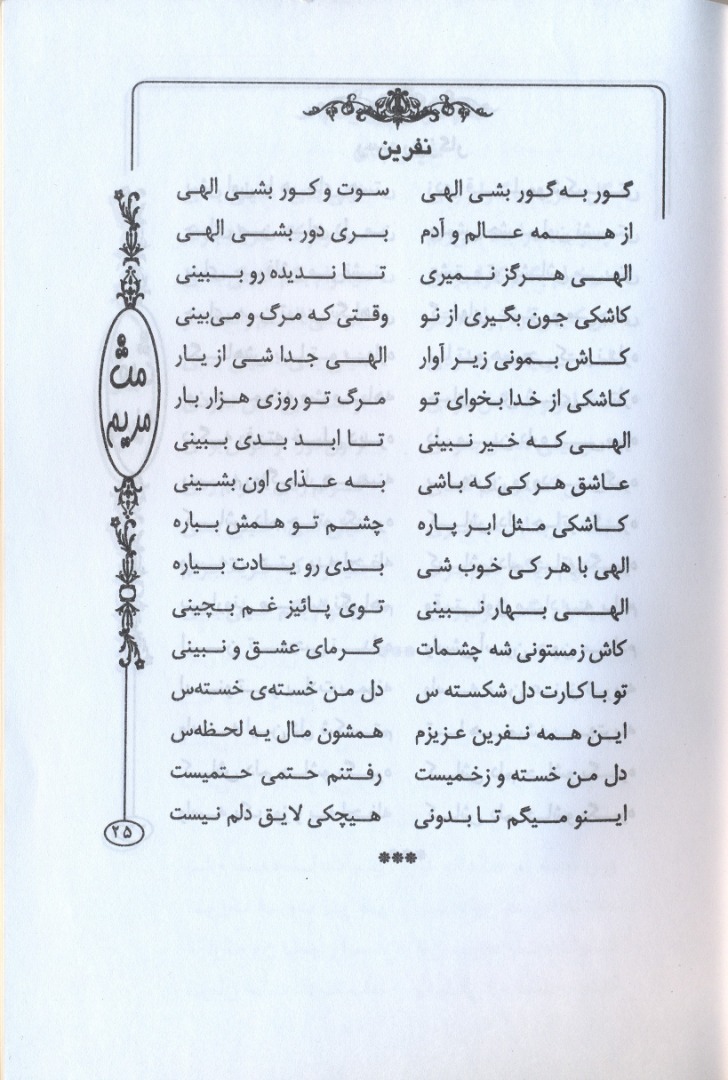 نفرین
گور به گور بشی الهی سوت و کور بشی الهی
از همه عالم و آدم بری دور بشی الهی
الهی هرگز نمیری تا ندیده رو ببینی
کاشکی جون بگیری از نو وقتی که مرگ و می‌بینی
کاش بمونی زیر آوار الهی جدا شی از یار
کاشکی از خدا بخوای تو مرگ تو روزی هزار بار
الهی که خیر نبینی تا ابد بدی ببینی
عاشق هر کی که باشی به عذای اون بشینی
کاشکی مثل ابر پاره چشم تو همش بباره
الهی با هر کی خوب شی بدی رو یادت بیاره
الهی بهار نبینی توی پائیز غم بچینی
کاش زمستونی شه چشمات گرمای عشق و نبینی
تو با کارت دل شکسته س دل من خسته‌ی خسته‌س
این همه نفرین عزیزم همشون مال یه لحظه‌س
دل من خسته و زخمیست رفتنم حتمی حتمیست
اینو میگم تا بدونی هیچکی لایق دلم نیست
***
مریم
۲۵